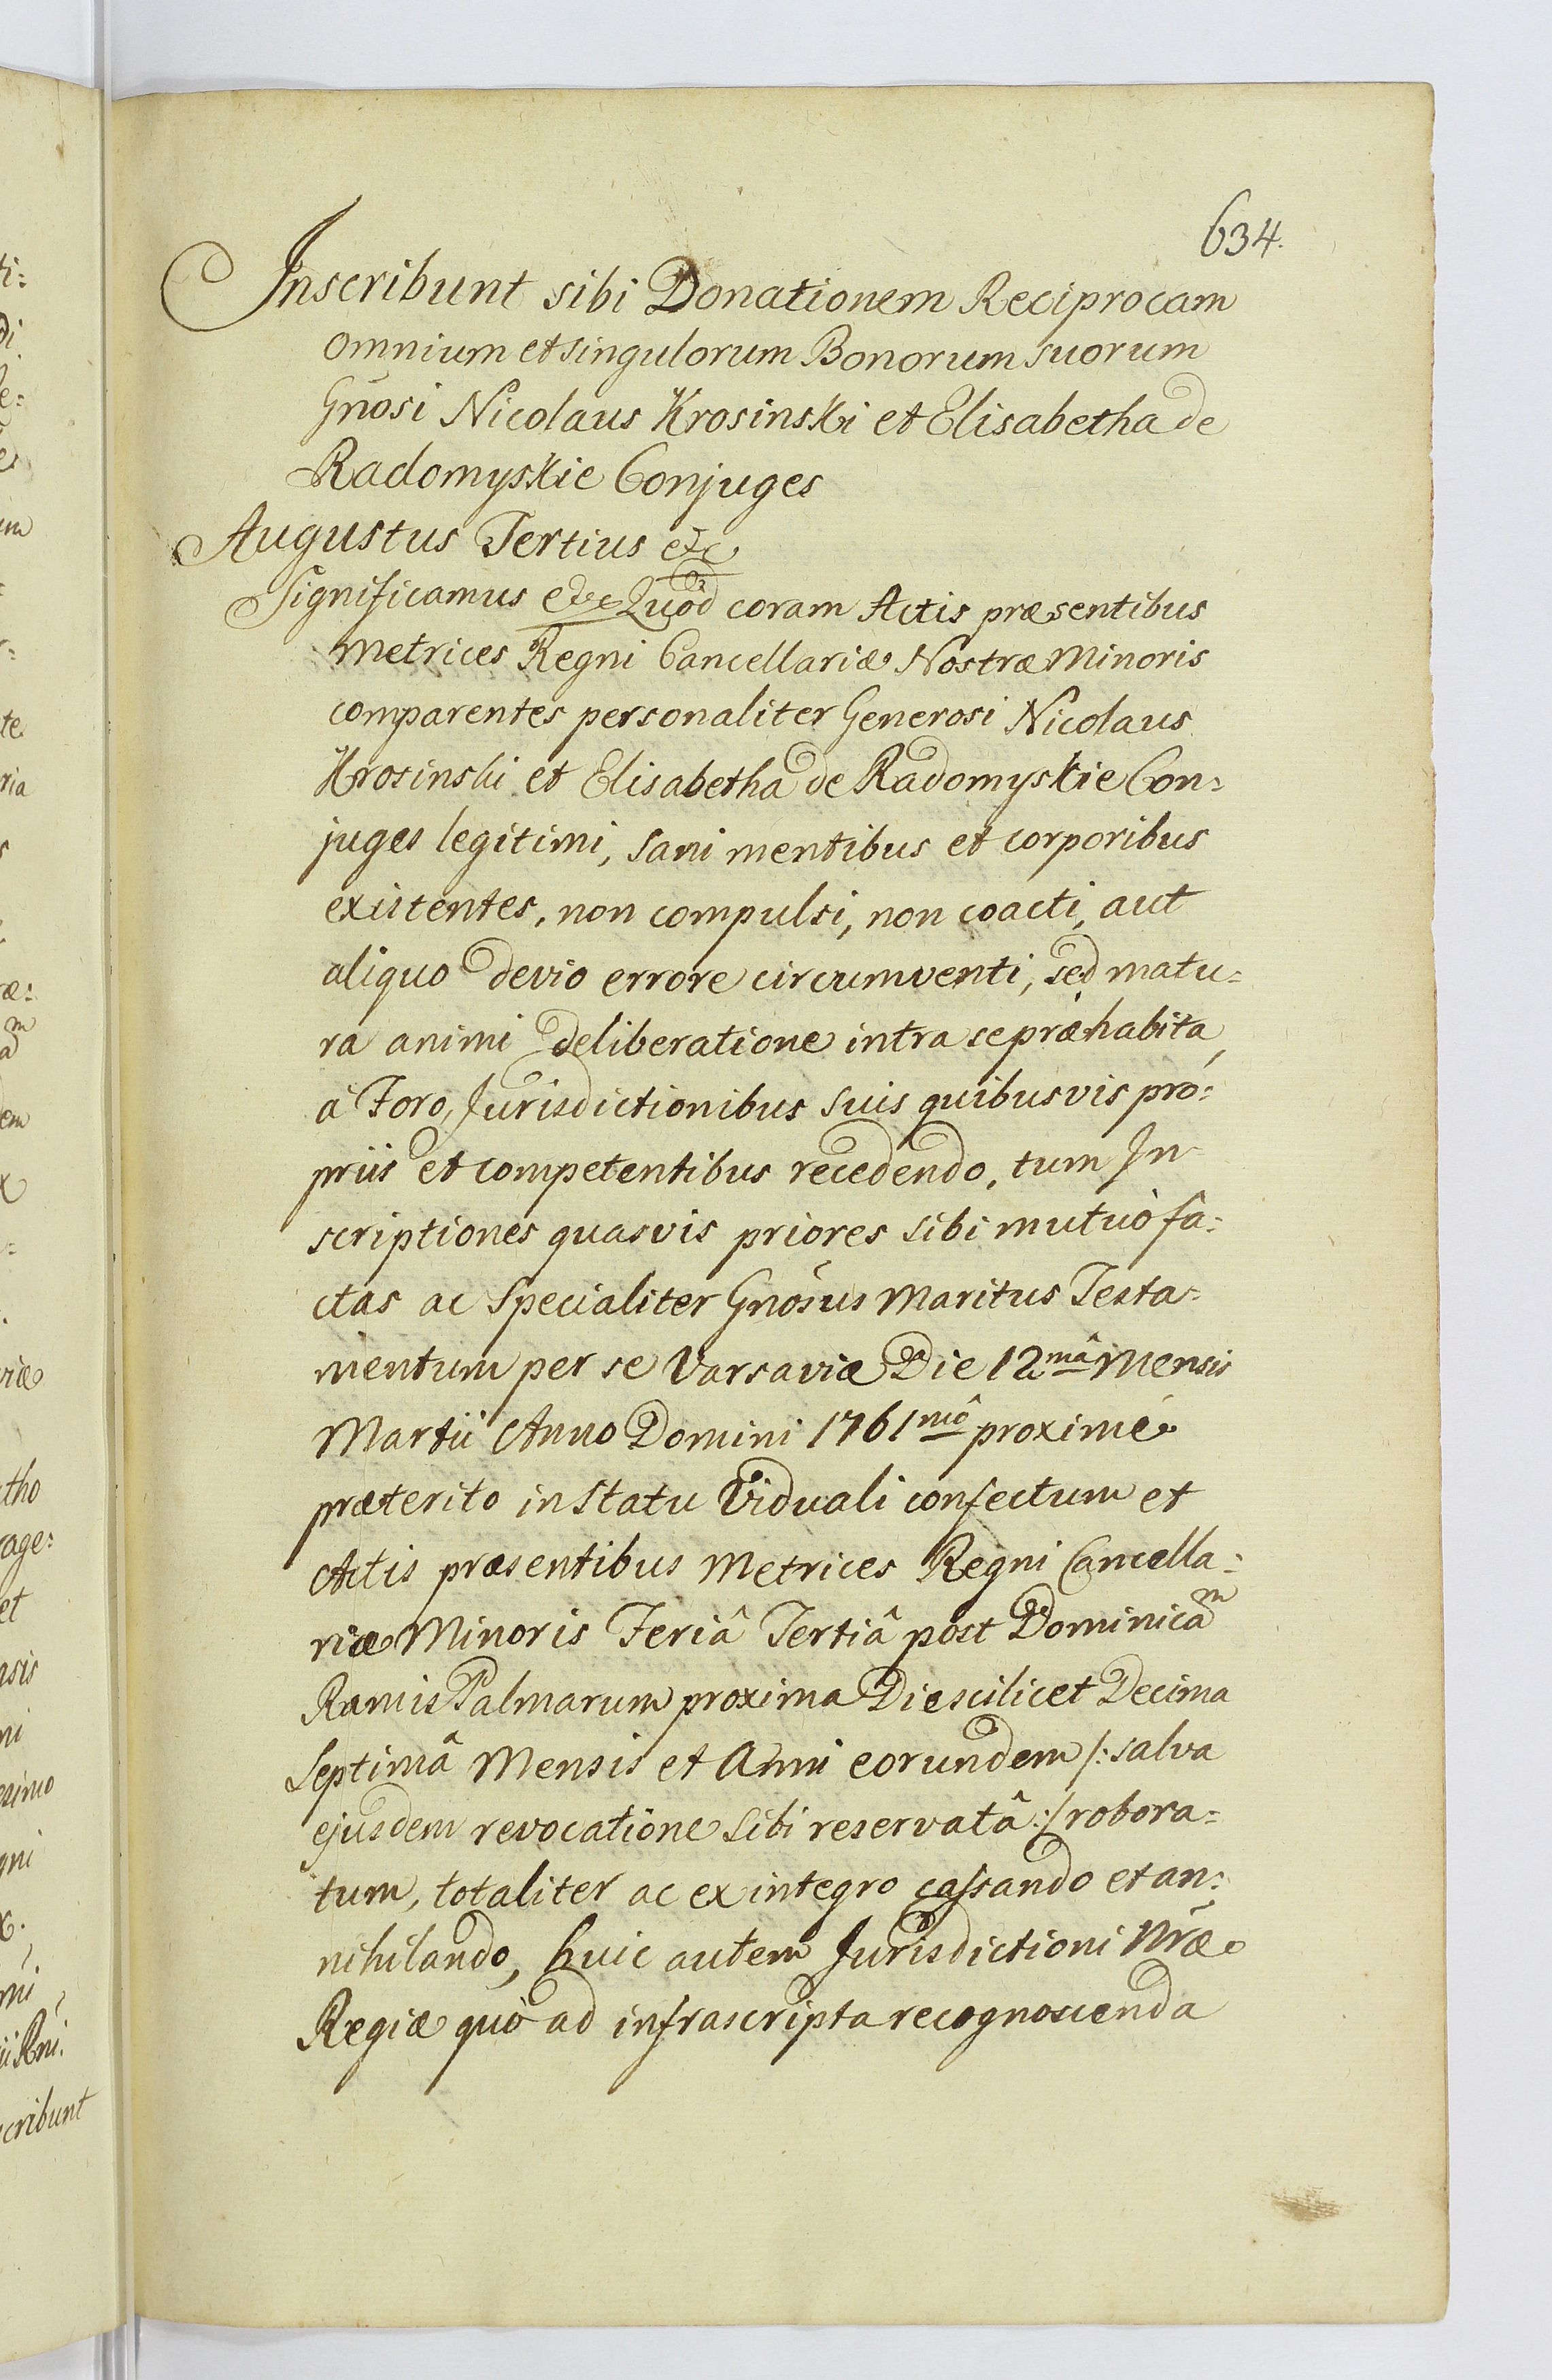 634.
Inscribunt sibi Donationem Reciprocam
omnium et singulorum Bonorum suorum
Gnõsi Nicolaus Krosinski et Elisabetha de
Radomyskie Conjuges
Augustus Tertius etc
Significamus etc Quòd coram Actis præsentibus
Metrices Regni Cancellariæ Nostræ Minoris
comparentes personaliter Generosi Nicolaus
Krosinski et Elisabetha de Radomyskie Con:
juges legitimi, sani mentibus et corporibus
existentes, non compulsi, non coacti, aut
aliquo devio errore circumventi, sed matu:
ra animi deliberatione intra se præhabita,
à Foro, Jurisdictionibus suis quibusvis pro:
priis et competentibus recedendo, tum In
scriptiones quasvis priores sibi mutuò fa:
ctas ac Specialiter Gnõsus Maritus Testa:
mentum per se Varsaviæ Die 12mâ Mensis
Martii Anno Domini 1761mô proximè
præterito in statu Viduali confectum et
Actis præsentibus Metrices Regni Cancella:
riæ Minoris Feriâ Tertiâ post Dominicam
Ramis Palmarum proxima Die scilicet Decima
Septimâ Mensis et Anni eorundem /: salva
ejusdem revocatione sibi reservatâ :/ robora:
tum, totaliter ac ex integro cassando et an:
nihilando, huic autem Jurisdictioni Nr̃æ
Regiæ quò ad infrascripta recognoscenda
ti:
di
um
te
ria
æ:
em
riæ
tho
rage:
et
asis
ni
esimo
gni
cribunt